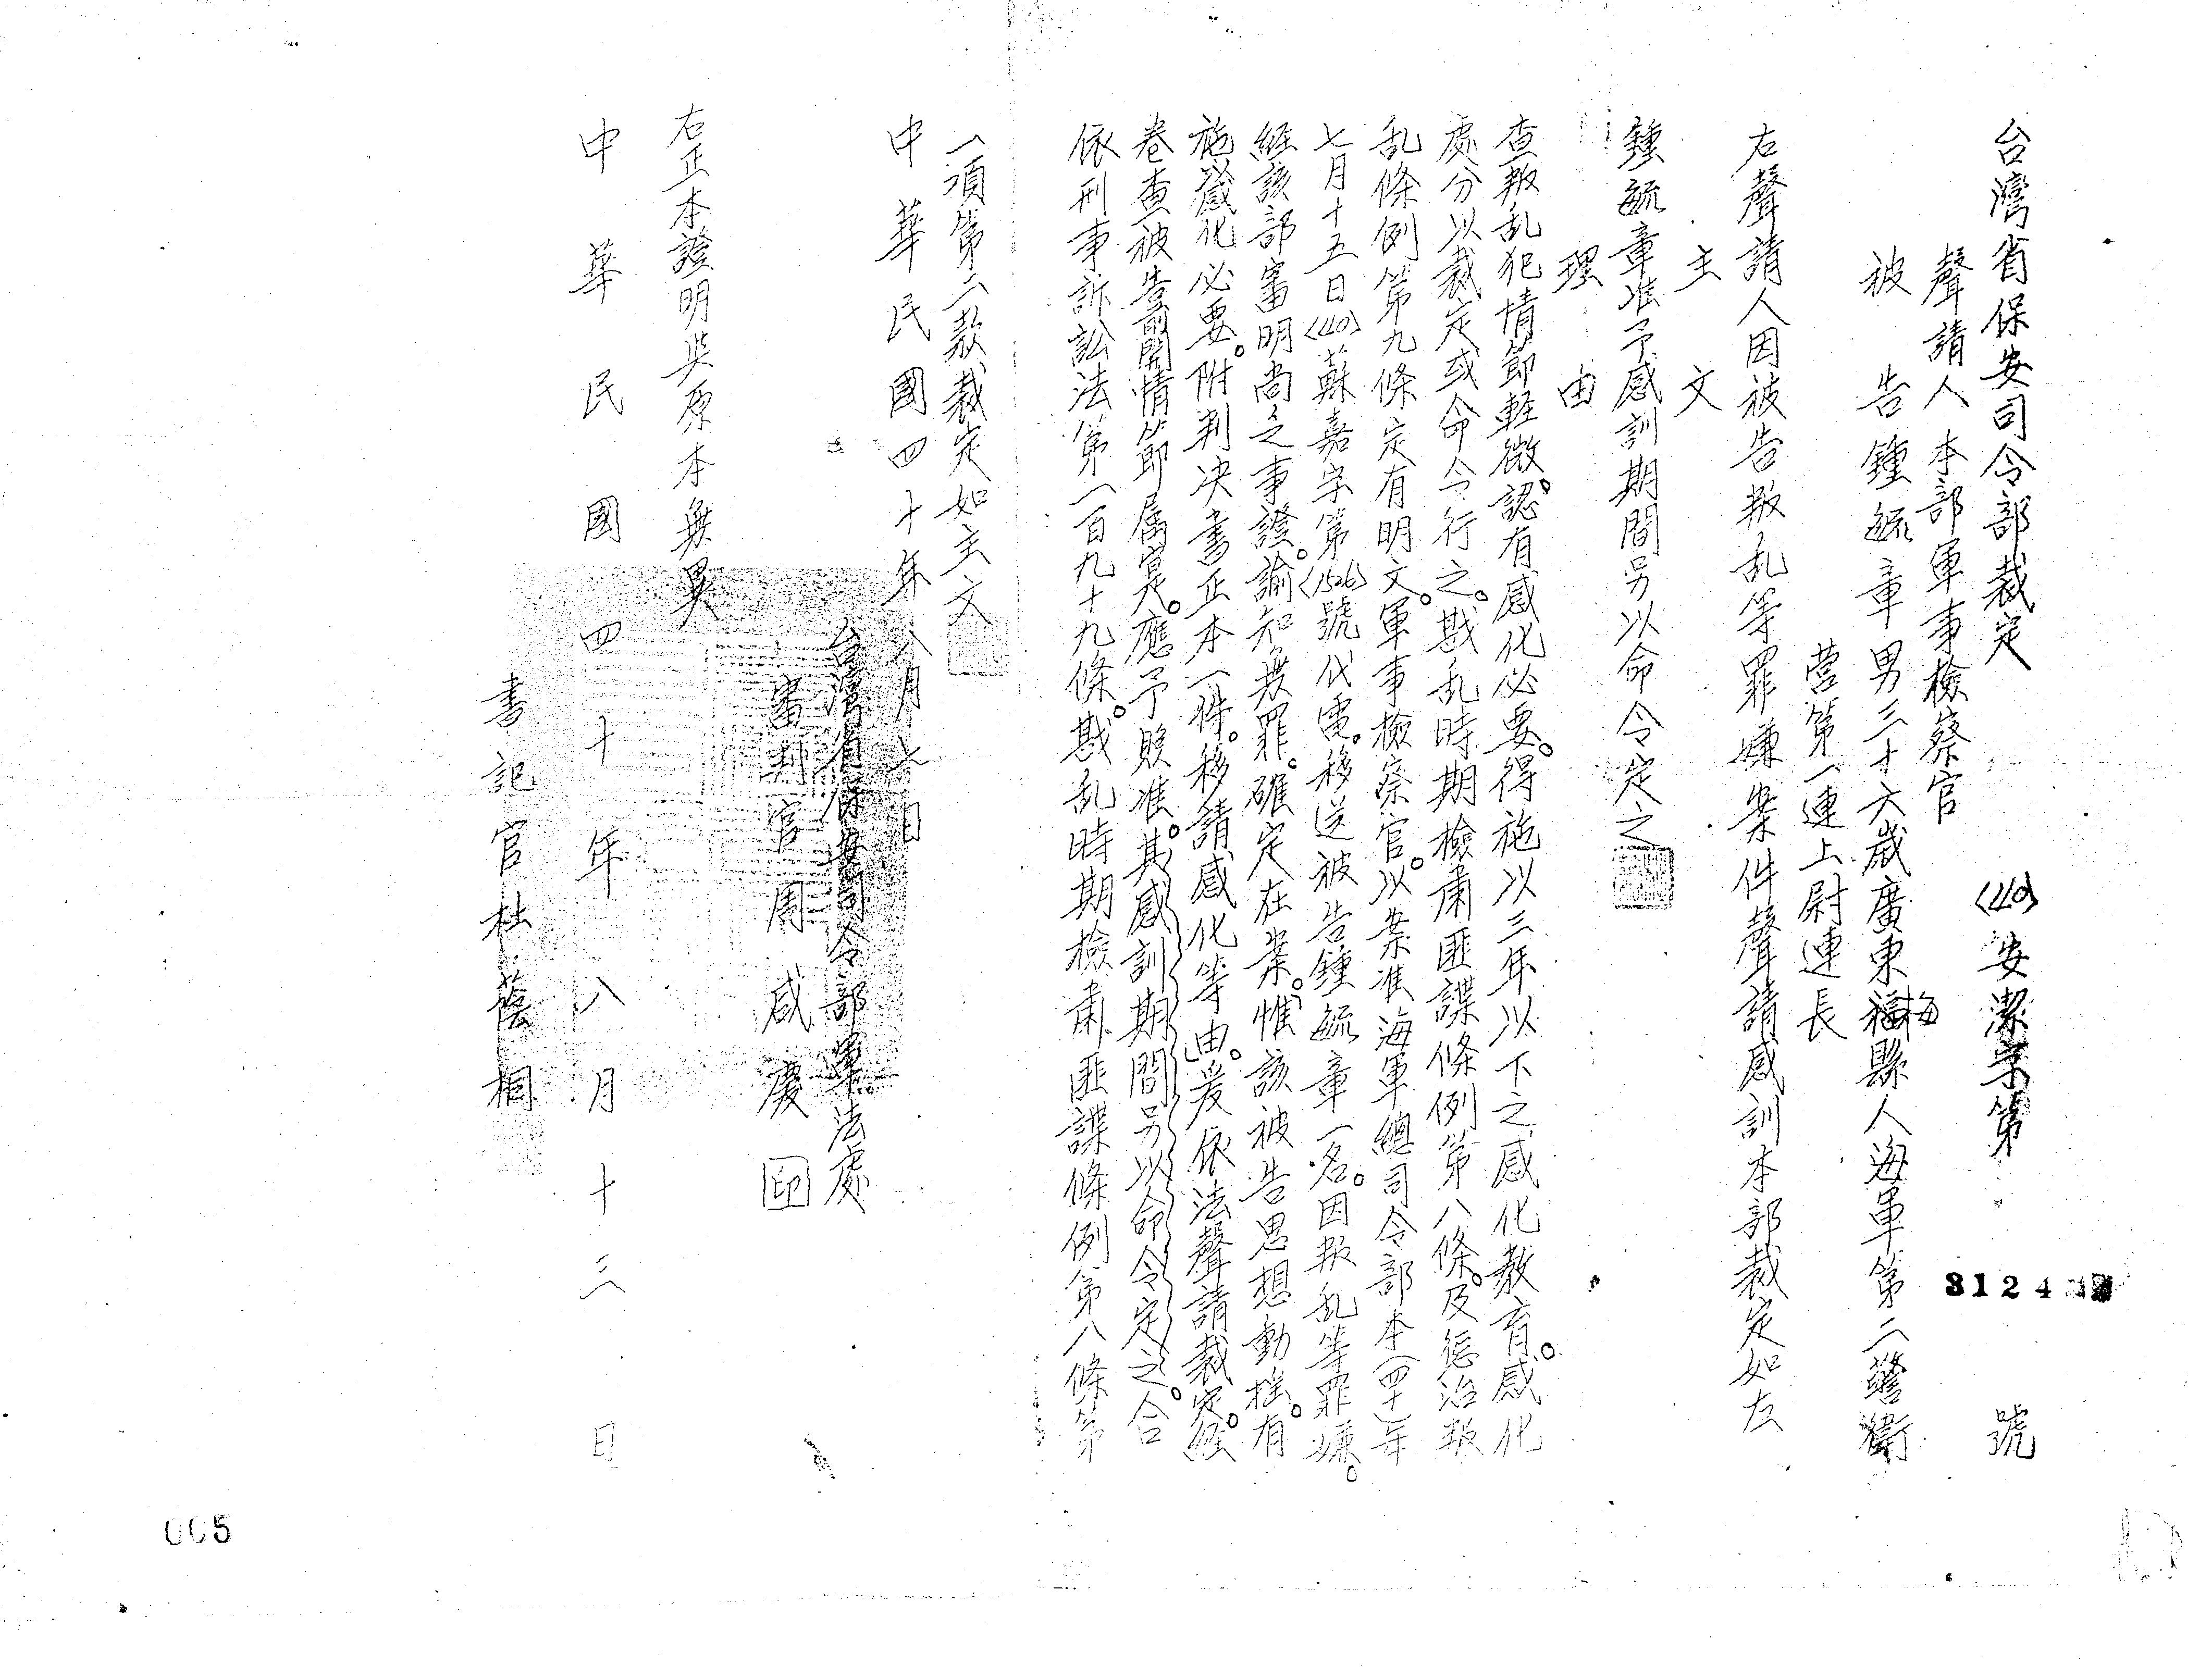 台灣省保安司令部裁定 (40)安潔字第 3124 號
聲請人 本部軍事檢察官
被告 鍾毓章 男三十六歲廣東梅縣人海軍第二警衛
營第一連上尉連長
右聲請人因被告叛乱等罪嫌案件聲請感訓本部裁定如左
主文
鍾毓章准予感訓期間另以命令定之
理由
查叛乱犯情節輕微。認有感化必要。得施以三年以下之感化教育。感化
處分以裁定或命令行之。戡乱時期檢肅匪諜條例第八條。及懲治叛
乱條例第九條定有明文。軍事檢察官。以案准海軍總司令部本(四十)年
七月十五日(40)蘇嘉字第(1526)號代電。移送被告鍾毓章一名。因叛乱等罪嫌。
經該部審明尚乏事證。諭知無罪。確定在案。惟該被告思想動搖。有
施以感化必要。附判決書正本一件。移請感化等由。爰依法聲請裁定。經
卷查被告前開情節屬寔。應予照准。其感訓期間另以命令定之。合
依刑事訴訟法第一百九十九條。戡乱時期檢肅匪諜條例第八條第
一項第二款裁定如主文
中華民國四十年八月七日
台灣省保安司令部軍法處
審判官周咸慶 印
右正本證明與原本無異
中華民國四十年八月十三日
書記官杜蔭桐
005